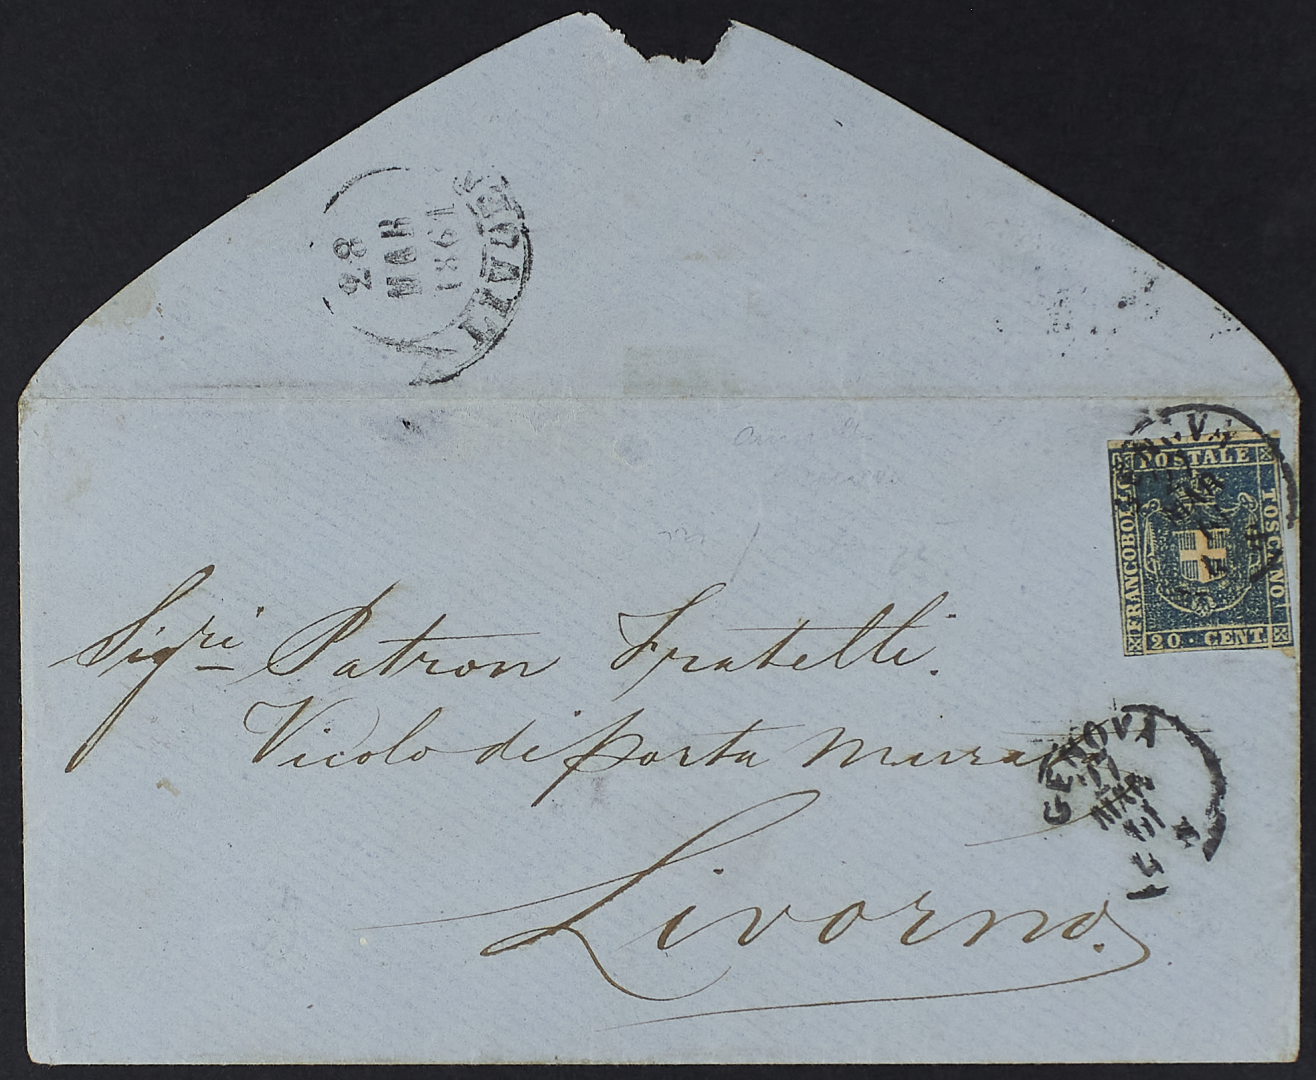 28
MAR
1861
POSTALE
FRANCOBOLLO
TOSCANO
20 CENT
Sigri Patron Fratelli.
Vicolo di porta murata
Livorno.
GENOVA
MAR
61